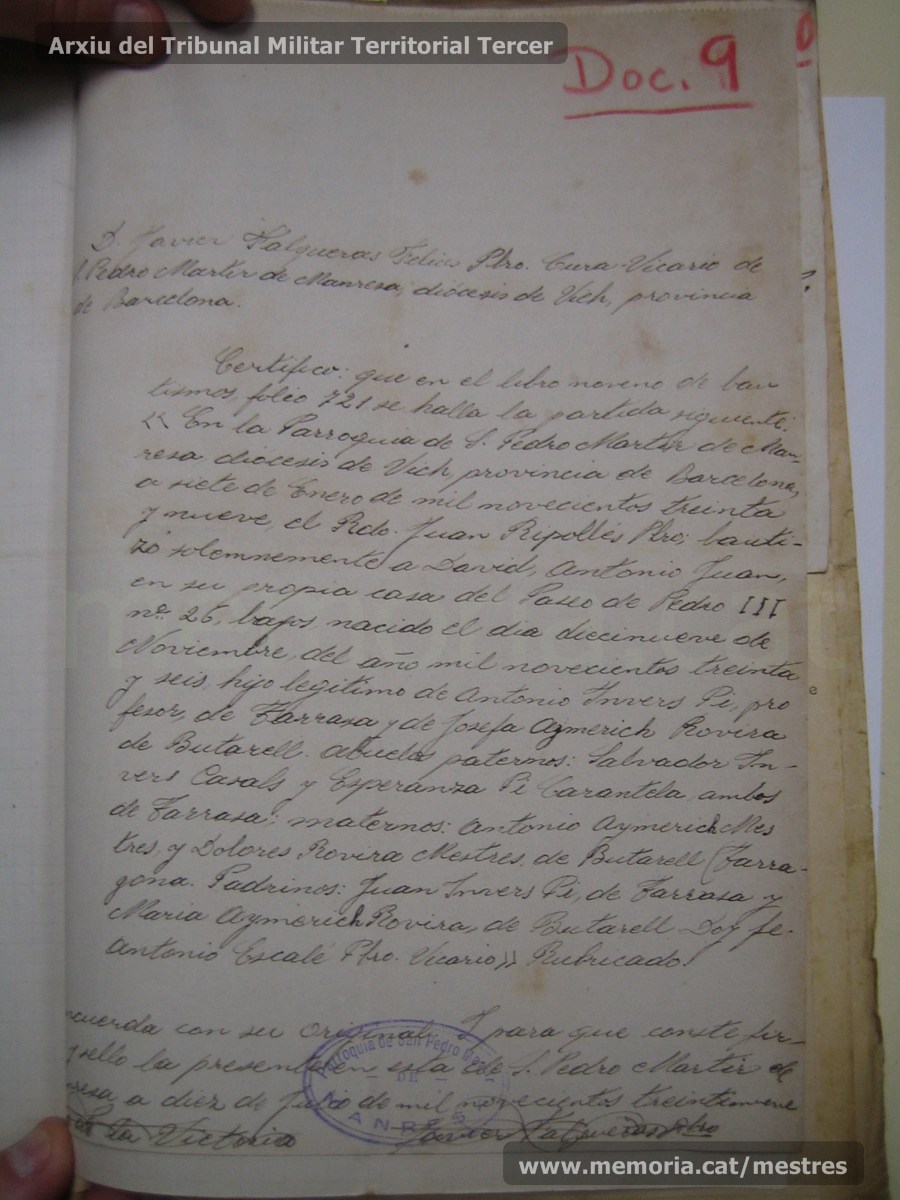 Arxiu del Tribunal Militar Territorial Tercer
Doc. 9
D. Javier Falgueras Feliu Pbro. Cura-Vicario de
S. Pedro Martir de Manresa, diócesis de Vich, provincia
de Barcelona.
Certifico: que en el libro noveno de bau
tismos, folio 721 se halla la partida siguiente:
<< En la Parroquia de S. Pedro Martir de Man-
resa diócesis de Vich, provincia de Barcelona,
a siete de Enero de mil novecientos treinta
y nueve, el Rdo. Juan Ripollés Pbro; bauti-
zó solemnemente a David, Antonio Juan,
en su propia casa del Paseo de Pedro III
nº. 26, bajos nacido el dia diecinueve de
Noviembre, del año mil novecientos treinta
y seis, hijo legitimo de Antonio Invers Pi, pro
fesor, de Tarrasa y de Josefa Aymerich Rovira
de Butarell. Abuelos paternos: Salvador In-
vers Casals y Esperanza Pi Carantela ambos
de Tarrasa; maternos: Antonio Aymerich Mes
tres, y Dolores Rovira Mestres, de Butarell (Tarra-
gona. Padrinos: Juan Invers Pi, de Tarrasa y
Maria Aymerich Rovira, de Butarell Doy fe-
Antonio Escalé Pbro. Vicario>> Rubricado.
cuerda con su original. Y para que conste fir-
y sello la presente en esta de S. Pedro Martir de
resa a diez de de mil novecientos treintinueve
la Victoria Javier Falgueras Pbro
Parroquia de San Pedro Martir
- DE -
MANRESA
www.memoria.cat/mestres